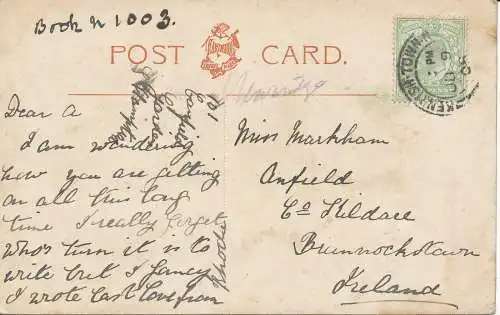 Book n 1003.
POST CARD.
KENTISH-TOWN
Dear A
I am wondering
how you are getting
on all this long
time I really forget
who's turn it is to
write but I fancy
I wrote last love from
Rhoda
101
Miss Markham
Anfield
Co Kildare
Brunnockstown
Ireland